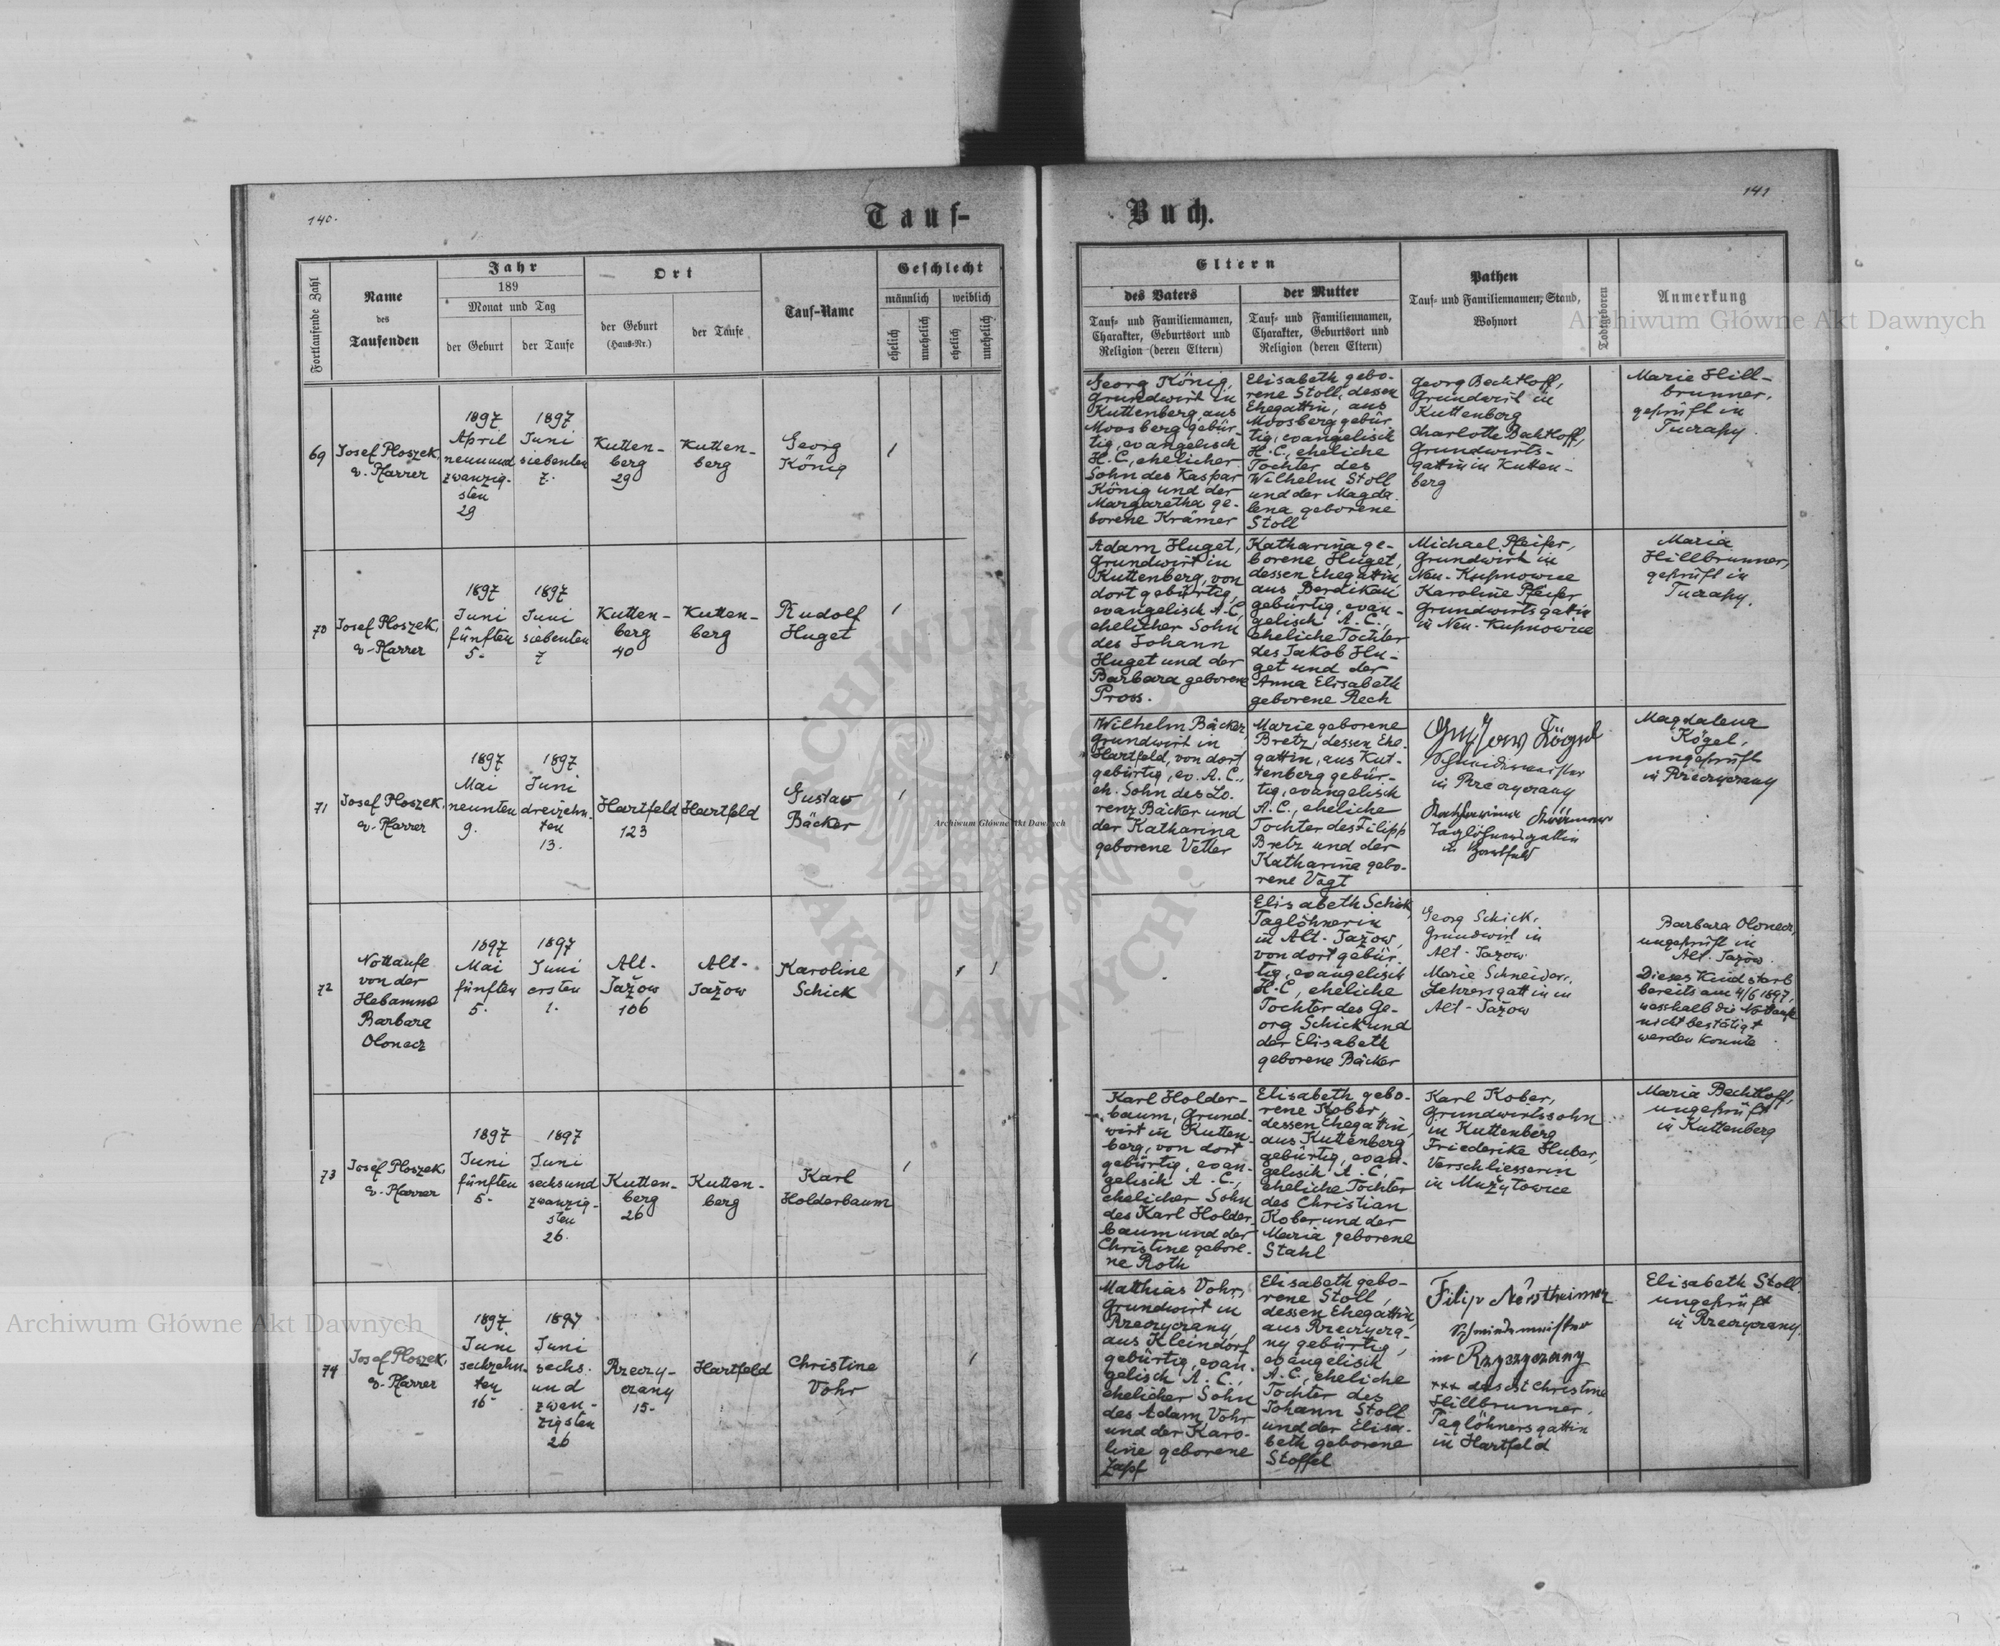 140.
141
Tauf-
Buch.
Fortlaufende Zahl
Name
des
Taufenden
Jahr
189
Monat und Tag
der Geburt
der Taufe
Ort
der Geburt
(Haus-Nr.)
der Taufe
Tauf-Name
Geschlecht
männlich
weiblich
ehelich
unehelich
ehelich
unehelich
Eltern
des Vaters
Tauf- und Familiennamen,
Charakter, Geburtsort und
Religion (deren Eltern)
der Mutter
Tauf- und Familiennamen,
Charakter, Geburtsort und
Religion (deren Eltern)
Pathen
Tauf- und Familiennamen, Stand,
Wohnort
Todtgeboren
Anmerkung
69
Josef Ploszek,
ev. Pfarrer
1897
April
neunund
zwanzig-
sten
29
1897
Juni
siebenten
7.
Kutten-
berg
29
Kutten-
berg
Georg
König
1
Georg König,
Grundwirt in
Kuttenberg, aus
Moosberg gebür-
tig, evangelisch
H.C., ehelicher
Sohn des Kaspar
König und der
Margaretha ge-
borene Krämer
Elisabeth gebo-
rene Stoll, dessen
Ehegattin, aus
Moosberg gebür
tig, evangelisch
H.C., eheliche
Tochter des
Wilhelm Stoll
und der Magda
lena geborene
Stoll
Georg Bechtloff,
Grundwirt in
Kuttenberg
Charlotte Bechtloff,
Grundwirts-
gattin in Kutten-
berg
Marie Hill-
brunner,
geprüft in
Tuczapy.
70
Josef Ploszek,
ev. Pfarrer
1897
Juni
fünften
5.
1897
Juni
siebenten
7
Kutten-
berg
40
Kutten-
berg
Rudolf
Huget
1
Adam Huget,
Grundwirt in
Kuttenberg, von
dort gebürtig,
evangelisch A.C,
ehelicher Sohn
des Johann
Huget und der
Barbara geborene
Pross.
Katharina ge-
borene Huget,
dessen Ehegattin,
aus Berdikau
gebürtig, evan-
gelisch A.C.,
eheliche Tochter
des Jakob Hu-
get und der
Anna Elisabeth
geborene Rech
Michael Pfeifer,
Grundwirt in
Neu-Kupnowice
Karoline Pfeifer
Grundwirtsgattin
in Neu-Kupnowice
Maria
Hillbrunner,
geprüft in
Tuczapy.
71
Josef Ploszek,
ev. Pfarrer
1897
Mai
neunten
9.
1897
Juni
dreizehn-
ten
13.
Hartfeld
123
Hartfeld
Gustav
Bäcker
1
Wilhelm Bäcker,
Grundwirt in
Hartfeld, von dort
gebürtig, ev. A.C.,
eh. Sohn des Lo-
renz Bäcker und
der Katharina
geborene Vetter
Marie geborene
Bretz, dessen Ehe-
gattin, aus Kut-
tenberg gebür-
tig, evangelisch
A.C., eheliche
Tochter des Filipp
Bretz und der
Katharina gebo-
rene Vogt
Gustow Kögel
Schmidmeister
in Rzeczyczany
Taglöhnersgattin
in Hartfeld
Magdalena
Kögel,
ungeprüft
in Rzeczyczany
72
Nottaufe
von der
Hebamme
Barbara
Olonecz
1897
Mai
fünften
5.
1897
Juni
ersten
1.
Alt-
Jažow
106
Alt-
Jažow
Karoline
Schick
1
1
Elisabeth Schick,
Taglöhnerin
in Alt-Jažow,
von dort gebür-
tig, evangelisch
H.C, eheliche
Tochter des Ge-
org Schick und
der Elisabeth
geborene Bäcker
Georg Schick,
Grundwirt in
Alt-Jazow
Marie Schneider,
Lehrersgattin in
Alt-Jažow
Barbara Olonecz,
ungeprüft in
Alt-Jažow.
Dieses Kind starb
bereits am 4/6 1897,
wesshalb die Nottaufe
nicht bestätigt
werden konnte
73
Josef Ploszek,
ev. Pfarrer
1897
Juni
fünften
5.
1897
Juni
sechsund
zwanzig-
sten
26.
Kutten-
berg
26
Kutten-
berg
Karl
Holderbaum
1
Karl Holder-
baum, Grund-
wirt in Kutten-
berg, von dort
gebürtig, evan-
gelisch A.C.,
ehelicher Sohn
des Karl Holder
baum und der
Christine gebore-
ne Roth
Elisabeth gebo-
rene Kober,
dessen Ehegattin,
aus Kuttenberg
gebürtig, evan-
gelisch A.C.,
eheliche Tochter
des Christian
Kober und der
Maria geborene
Stahl
Karl Kober,
Grundwirtssohn
in Kuttenberg
Friederike Huber,
Verschliesserin
in Mužytowice
Maria Bechtloff,
ungeprüft
in Kuttenberg
74
Josef Ploszek,
ev. Pfarrer
1897
Juni
sechzehn-
ten
16.
1897
Juni
sechs-
und
zwan-
zigsten
26
Rzeczy-
czany
15.
Hartfeld
Christine
Vohr
1
Matthias Vohr,
Grundwirt in
Rzeczyczany,
aus Kleindorf
gebürtig, evan-
gelisch A.C.,
ehelicher Sohn
des Adam Vohr
und der Karo-
line geborene
Zapf
Elisabeth gebo-
rene Stoll,
dessen Ehegattin,
aus Rzeczycza-
ny gebürtig,
evangelisch
A.C., eheliche
Tochter des
Johann Stoll
und der Elisa-
beth geborene
Stoffel
Filip
Schmidemeister
in Rzyczyczany
xxx das ist Christine
Hillbrunner,
Taglöhnersgattin
in Hartfeld
Elisabeth Stoll
ungeprüft
in Rzeczyczany.
Archiwum Główne Akt Dawnych
Archiwum Główne Akt Dawnych
Archiwum Główne Akt Dawnych
ARCHIWUM
AKT DAWNYCH